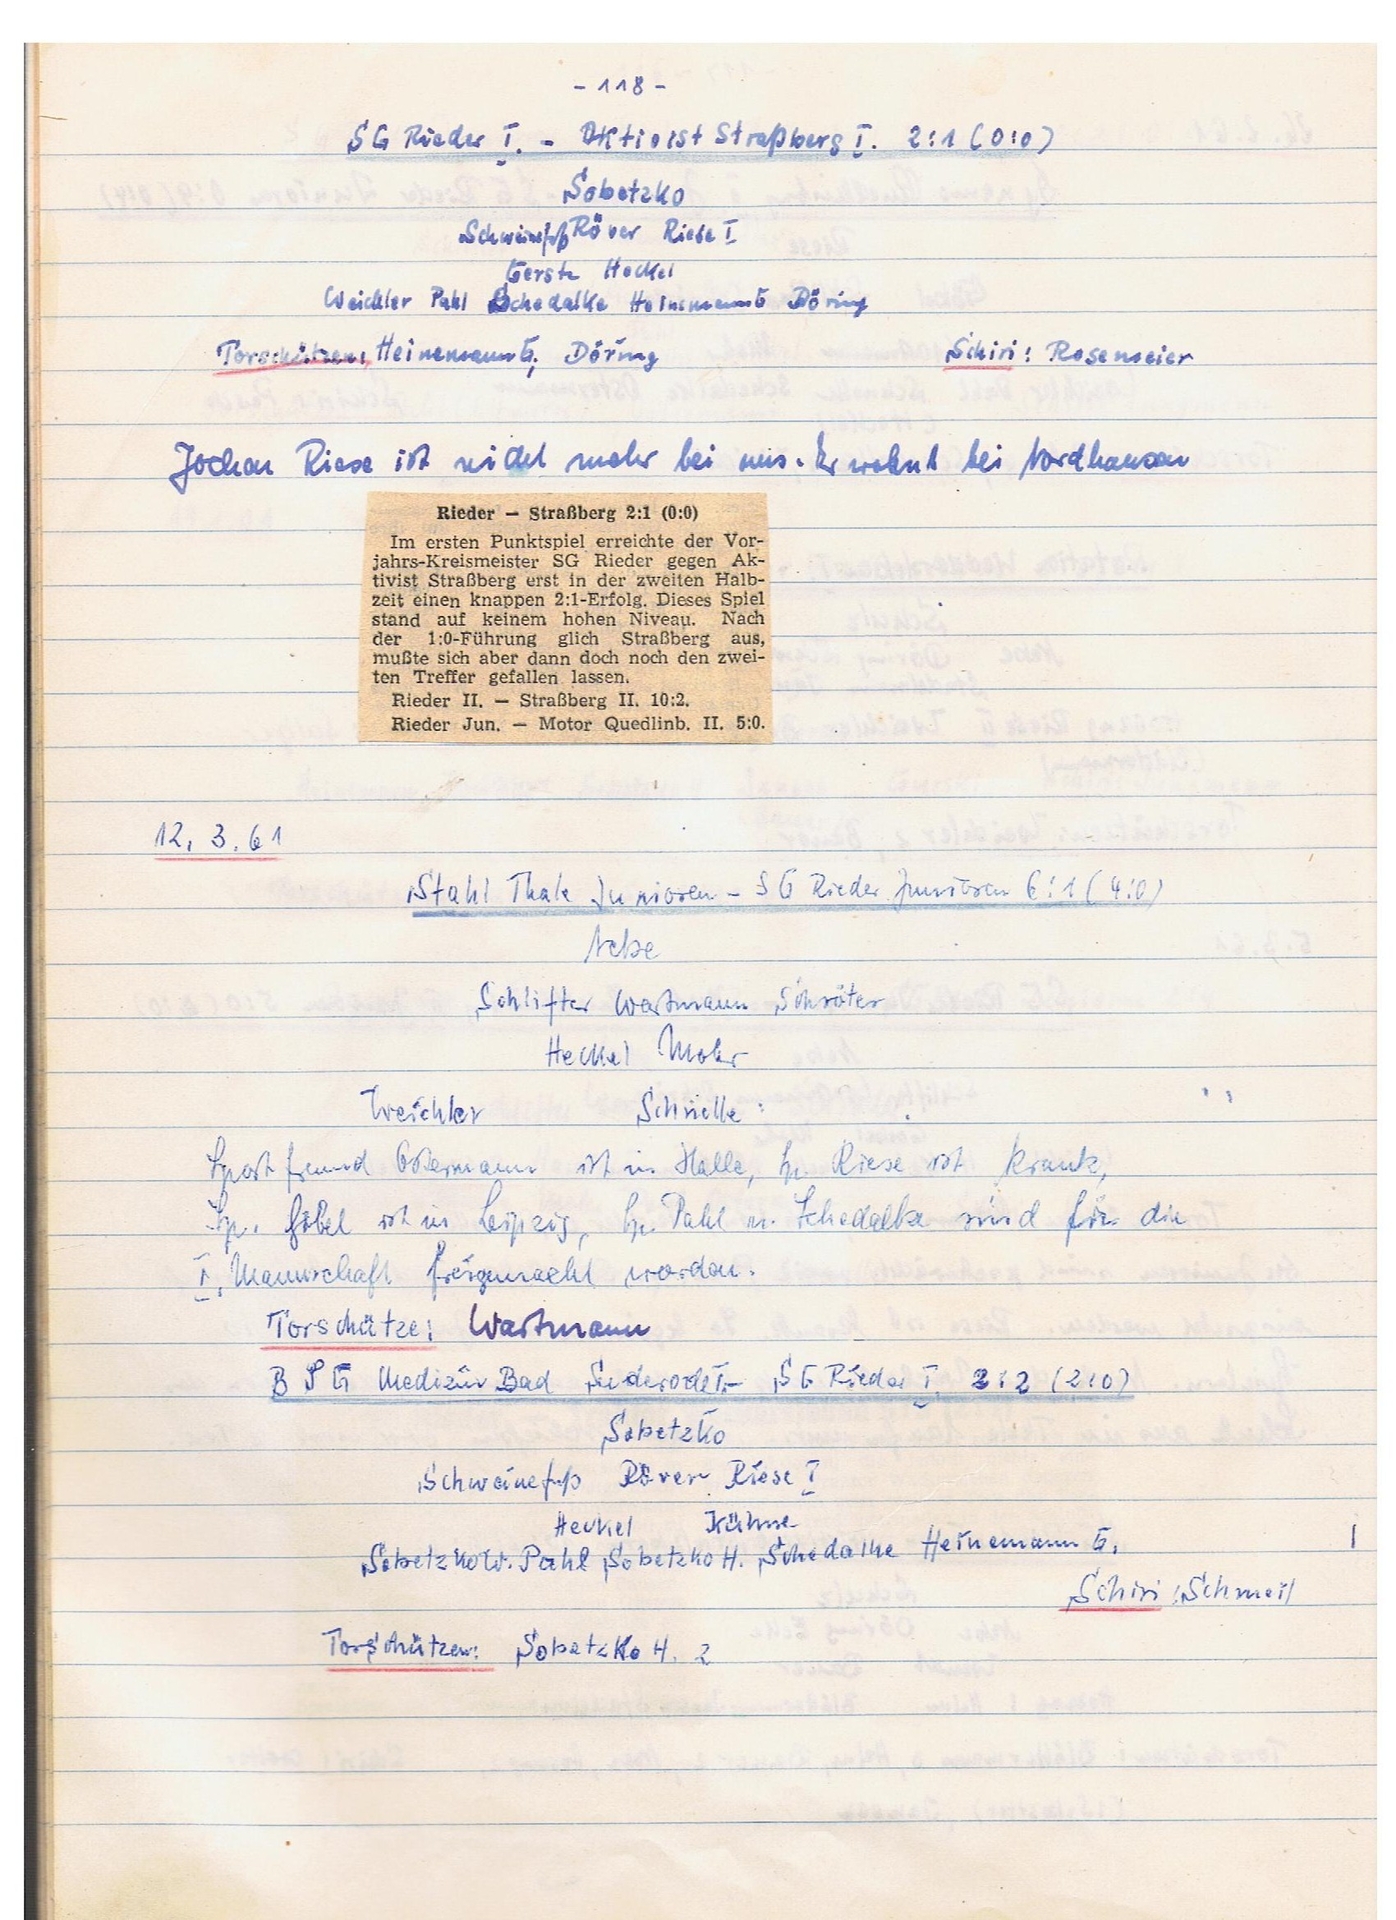 - 118 -
SG Rieder I. - Aktivist Straßberg I. 2:1 (0:0)
Sobetzko
Schweinefuß Röver Riese I
Gerste Heckel
Weichler Pahl Schedalke Heinemann G Döring
Torschützen: Heinemann G, Döring Schiri: Rosemeier
Jochen Riese ist nicht mehr bei uns. Er wohnt bei Nordhausen
Rieder — Straßberg 2:1 (0:0)
Im ersten Punktspiel erreichte der Vor-
jahrs-Kreismeister SG Rieder gegen Ak-
tivist Straßberg erst in der zweiten Halb-
zeit einen knappen 2:1-Erfolg. Dieses Spiel
stand auf keinem hohen Niveau. Nach
der 1:0-Führung glich Straßberg aus,
mußte sich aber dann doch noch den zwei-
ten Treffer gefallen lassen.
Rieder II. — Straßberg II. 10:2.
Rieder Jun. — Motor Quedlinb. II. 5:0.
12. 3. 61
Stahl Thale Junioren - SG Rieder Junioren 6:1 (4:0)
Nebe
Schlifter Wartmann Schröter
Heckel Mohr
Weichler Schnelle
Sportfreund Ostermann ist in Halle, Sp. Riese ist krank,
Sp. Göbel ist in Leipzig, Sp. Pahl u. Schedalke sind für die
I. Mannschaft freigemacht worden.
Torschütze: Wartmann
BSG Medizin Bad Suderode I - SG Rieder I. 2:2 (2:0)
Sobetzko
Schweinefuß Röver Riese I
Heckel Kühne
Sobetzko W. Pahl Sobetzko H. Schedalke Heinemann G.
Schiri: Schmeil
Torschützen: Sobetzko H. 2